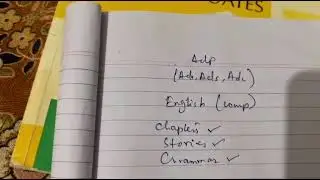 GATES
Adp
(Ab, Adc, Adc)
English (comp)
Chapters ✓
Stories ✓
Grammar ✓